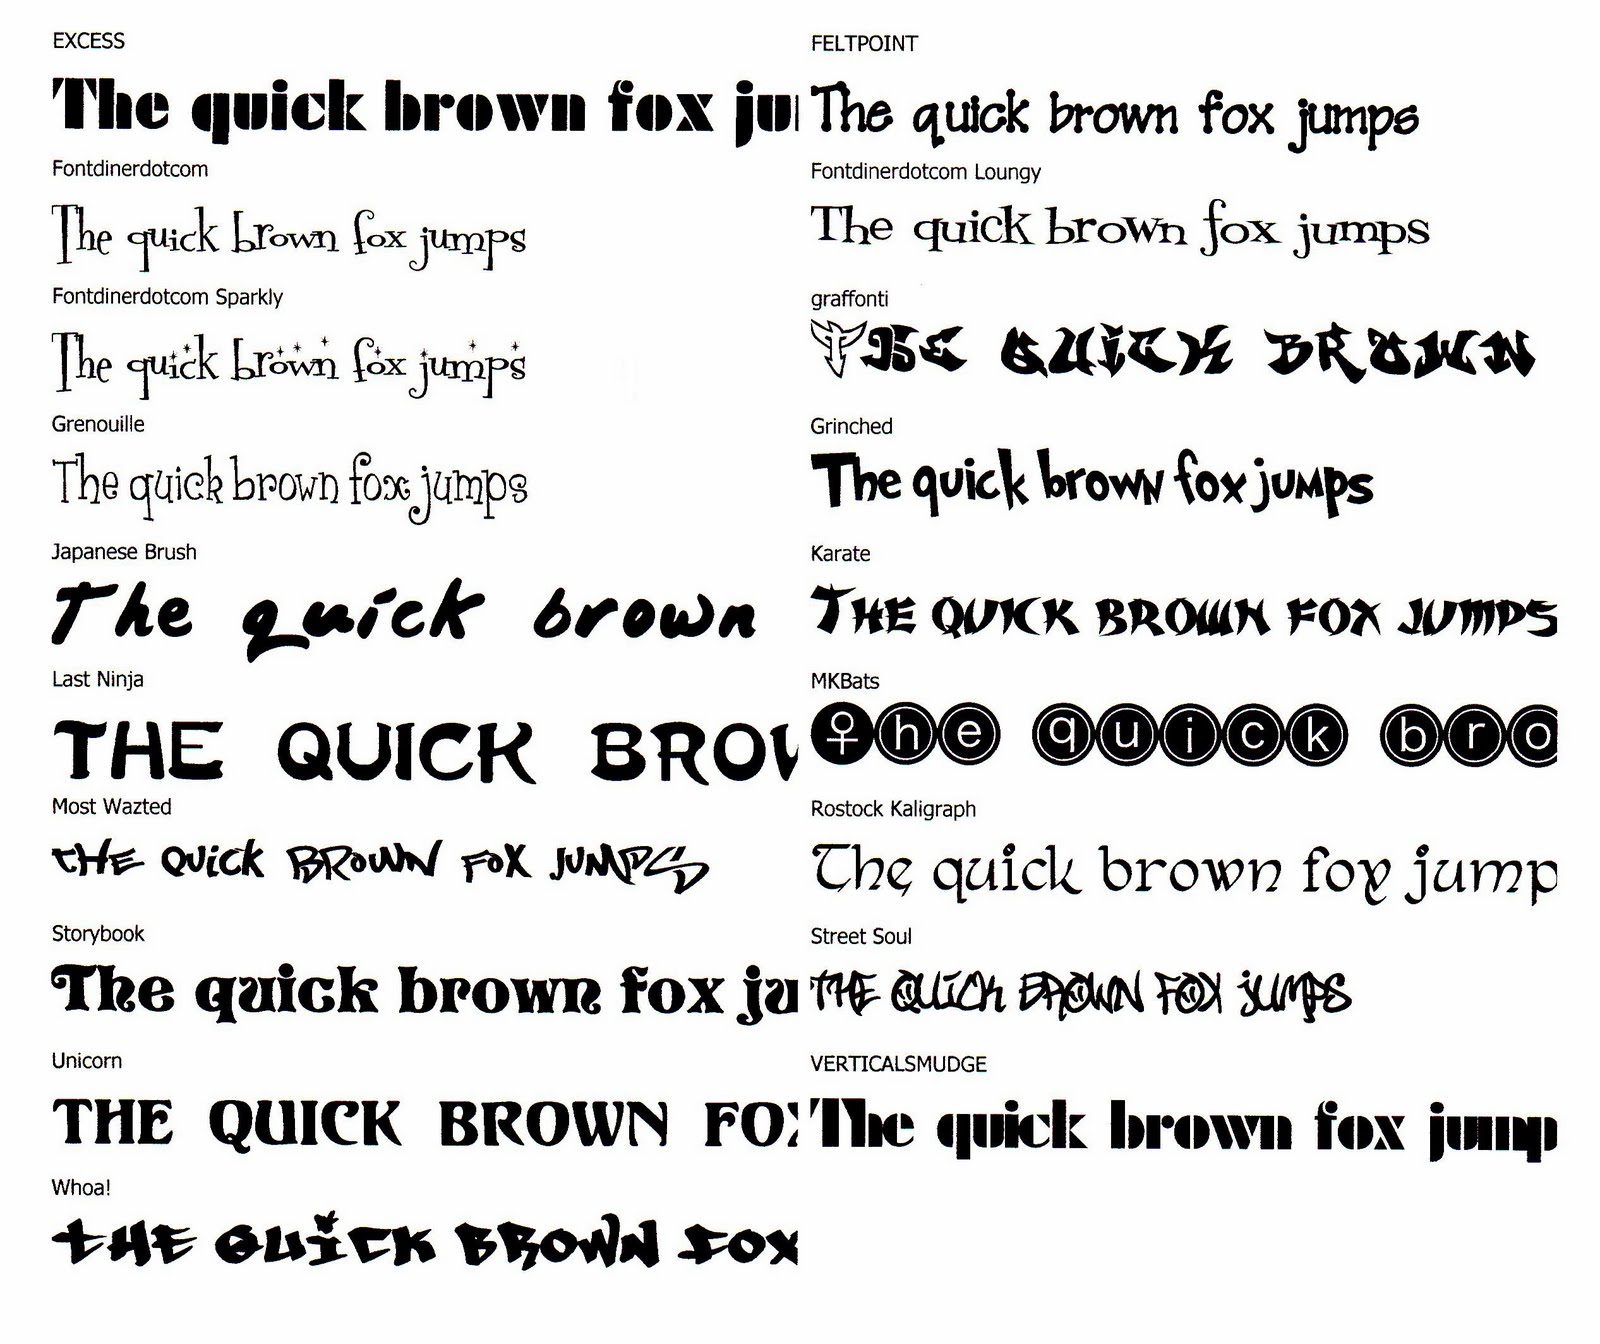 EXCESS
The quick brown fox ju
Fontdinerdotcom
The quick brown fox jumps
Fontdinerdotcom Sparkly
The quick brown fox jumps
Grenouille
The quick brown fox jumps
Japanese Brush
The quick brown
Last Ninja
THE QUICK BROW
Most Wazted
tHE QUiCk BROWN FOX JUMPS
Storybook
The quick brown fox ju
Unicorn
THE QUICK BROWN FOX
Whoa!
tHE QUiCK BROWN FOX
FELTPOINT
The quick brown fox jumps
Fontdinerdotcom Loungy
The quick brown fox jumps
graffonti
THE QUICK BROWN
Grinched
The quick brown fox jumps
Karate
THE QUICK BROWN FOX JUMPS
MKBats
the quick bro
Rostock Kaligraph
The quick brown fox jump
Street Soul
THE QUiCk BROWN FOX jUMPS
VERTICALSMUDGE
The quick brown fox jump